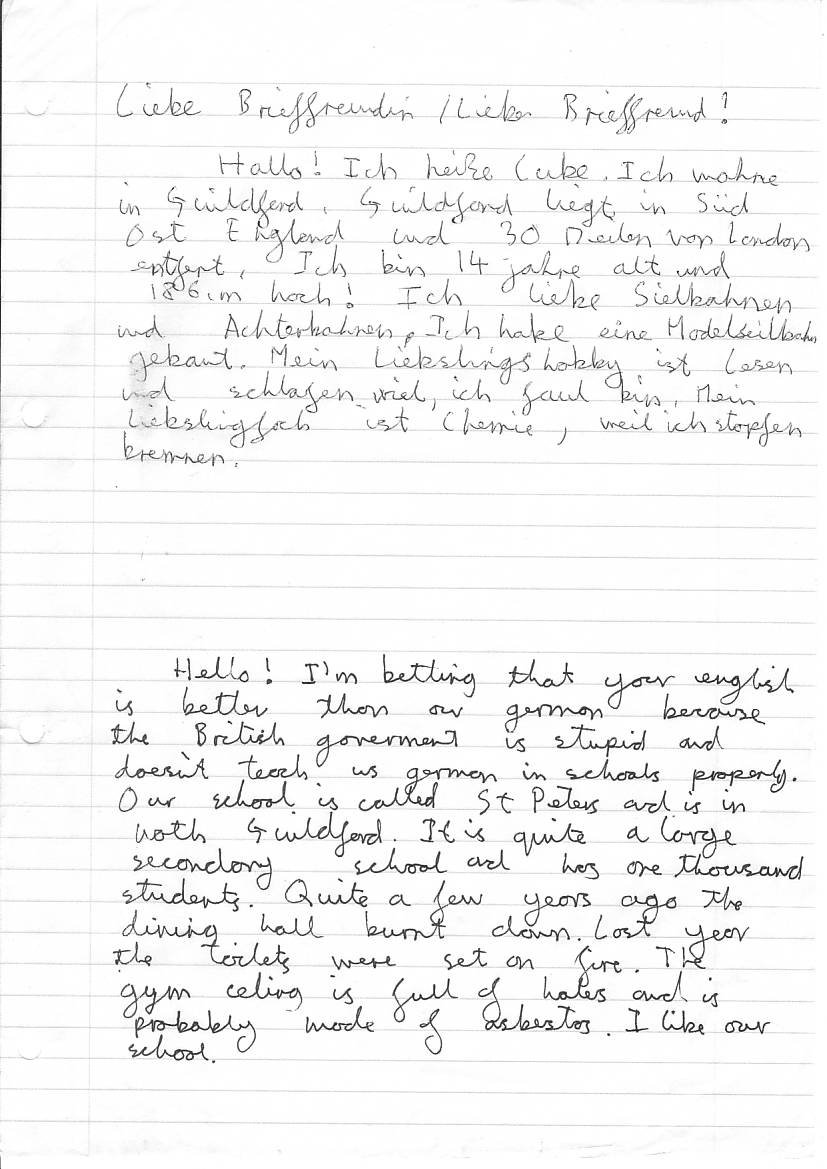 Liebe Brieffreundin / Lieber Brieffreund!
Hallo! Ich heiße Luke. Ich wohne
in Guildford. Guildford liegt in Süd
Ost England und 30 Meilen von London
entfert, Ich bin 14 jahre alt und
186cm hoch! Ich liebe Sielbahnen
und Achterbahnen. Ich habe eine Modelseilbahn
gebaut. Mein Liebslingshobby ist lesen
und schlafen wiel, ich faul bin, Mein
Liebslingfach ist Chemie, weil ich stopfen
bremnen.
Hello! I'm betting that your english
is better than our german because
the British goverment is stupid and
doesn't teach us german in schools properly.
Our school is called St Peters and is in
noth Guildford. It is quite a large
secondary school and has one thousand
students. Quite a few years ago the
dining hall burnt down. Last year
the toilets were set on fire. The
gym celing is full of holes and is
probably made of asbestos. I like our
school.